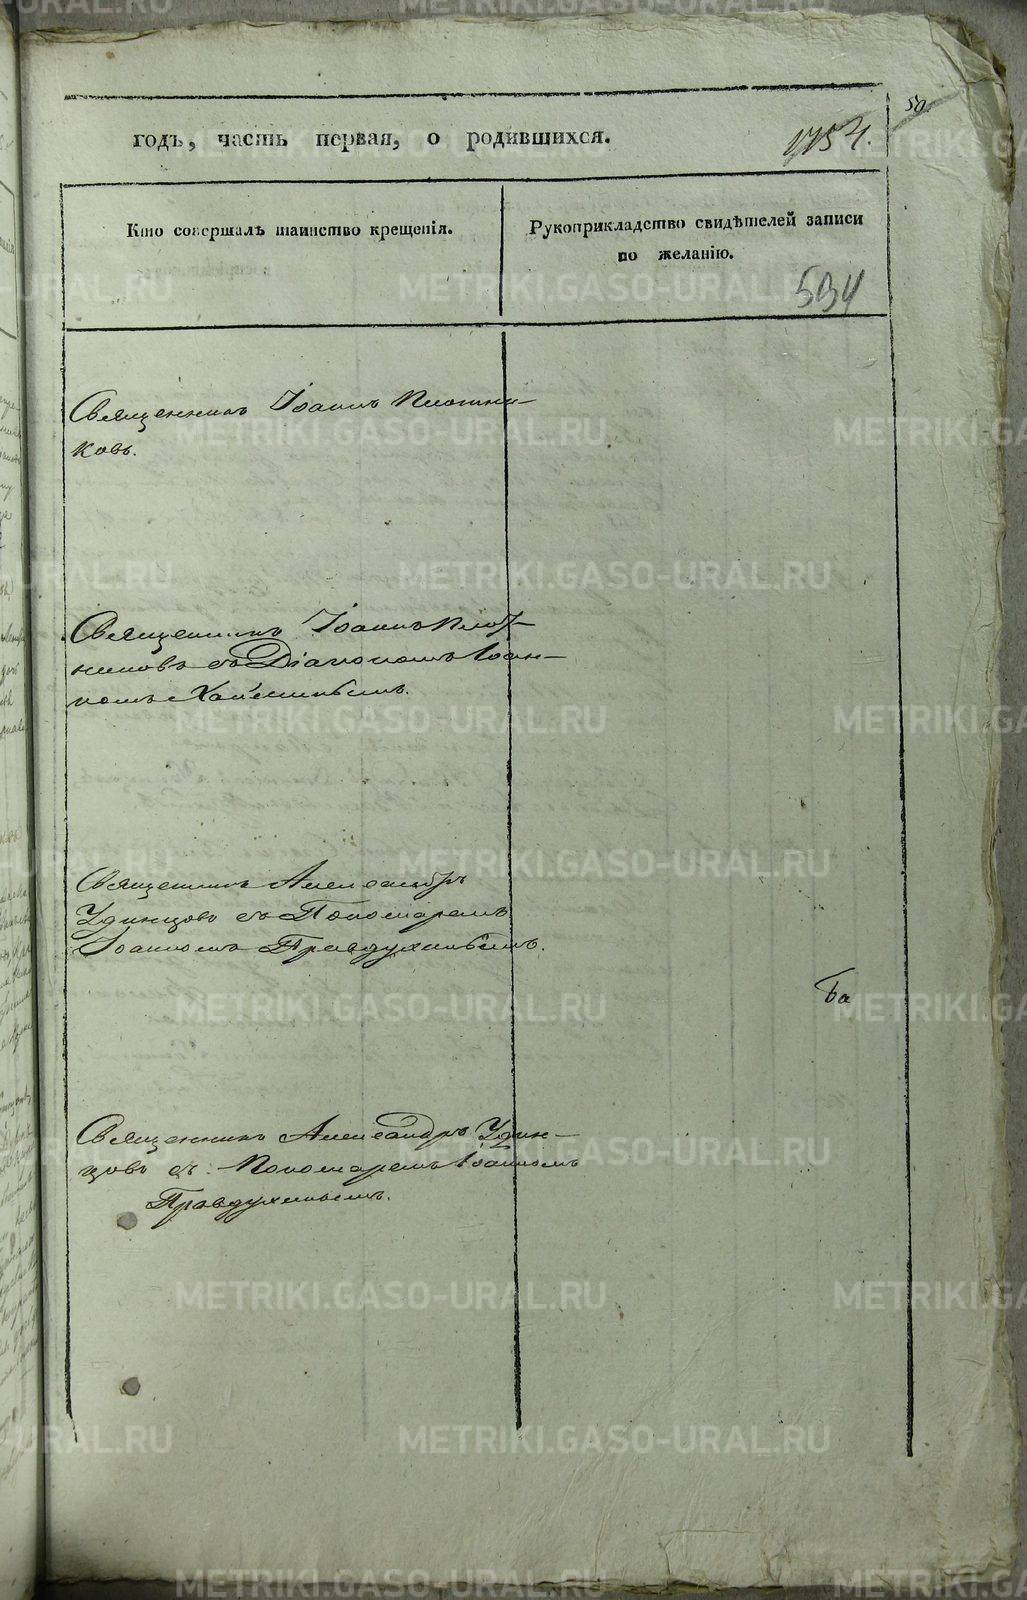 50
годъ, часть первая, о родившихся.
1154.
Кто совершалъ таинство крещенія.
Рукоприкладство свидѣтелей записи
по желанію.
594
Священникъ Іоаннъ Плотни-
ковъ.
Священникъ Іоаннъ Плот-
никовъ съ Діакономъ Іоан-
номъ
Священникъ Александръ
Удинцовъ съ Пономаремъ
Іоанномъ Правдухинымъ.
Священникъ Александръ Удин-
цовъ съ Пономаремъ Іоанномъ
Правдухинымъ.
METRIKI.GASO-URAL.RU